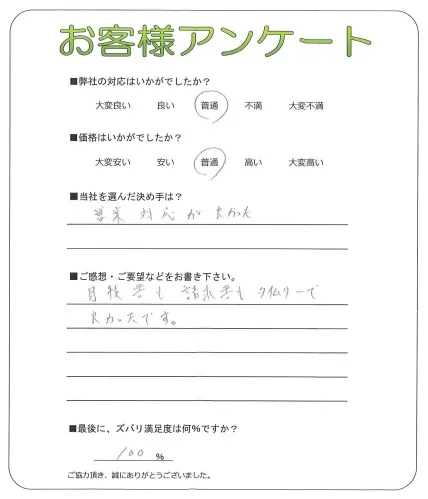 お客様アンケート
■弊社の対応はいかがでしたか？
大変良い 良い 普通 不満 大変不満
■価格はいかがでしたか？
大変安い 安い 普通 高い 大変高い
■当社を選んだ決め手は？
営業対応が良かった
■ご感想・ご要望などをお書き下さい。
見積書も 請求書も タイムリーで
良かったです。
■最後に、ズバリ満足度は何％ですか？
100 %
ご協力頂き、誠にありがとうございました。